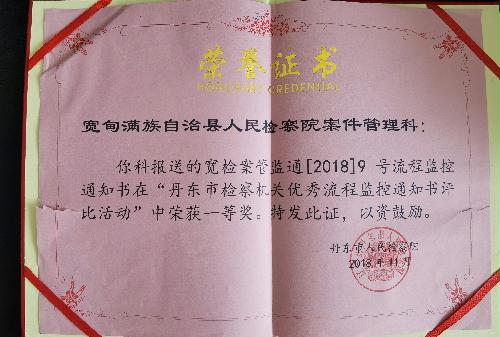 荣誉证书
HONORARY CREDENTIAL
宽甸满族自治县人民检察院案件管理科:
你科报送的宽检案管监通[2018]9 号流程监控
通知书在“丹东市检察机关优秀流程监控通知书评
比活动”中荣获一等奖。特发此证,以资鼓励。
丹东市人民检察院
2018年11月